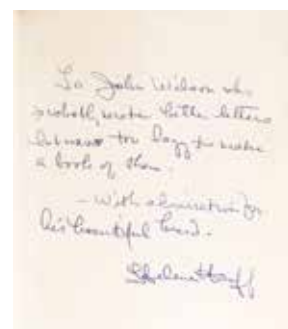 To John Wilson who
probably wrote better letters
but was too lazy to make
a book of them.
– With admiration for
his beautiful beard.
Helene Hanff